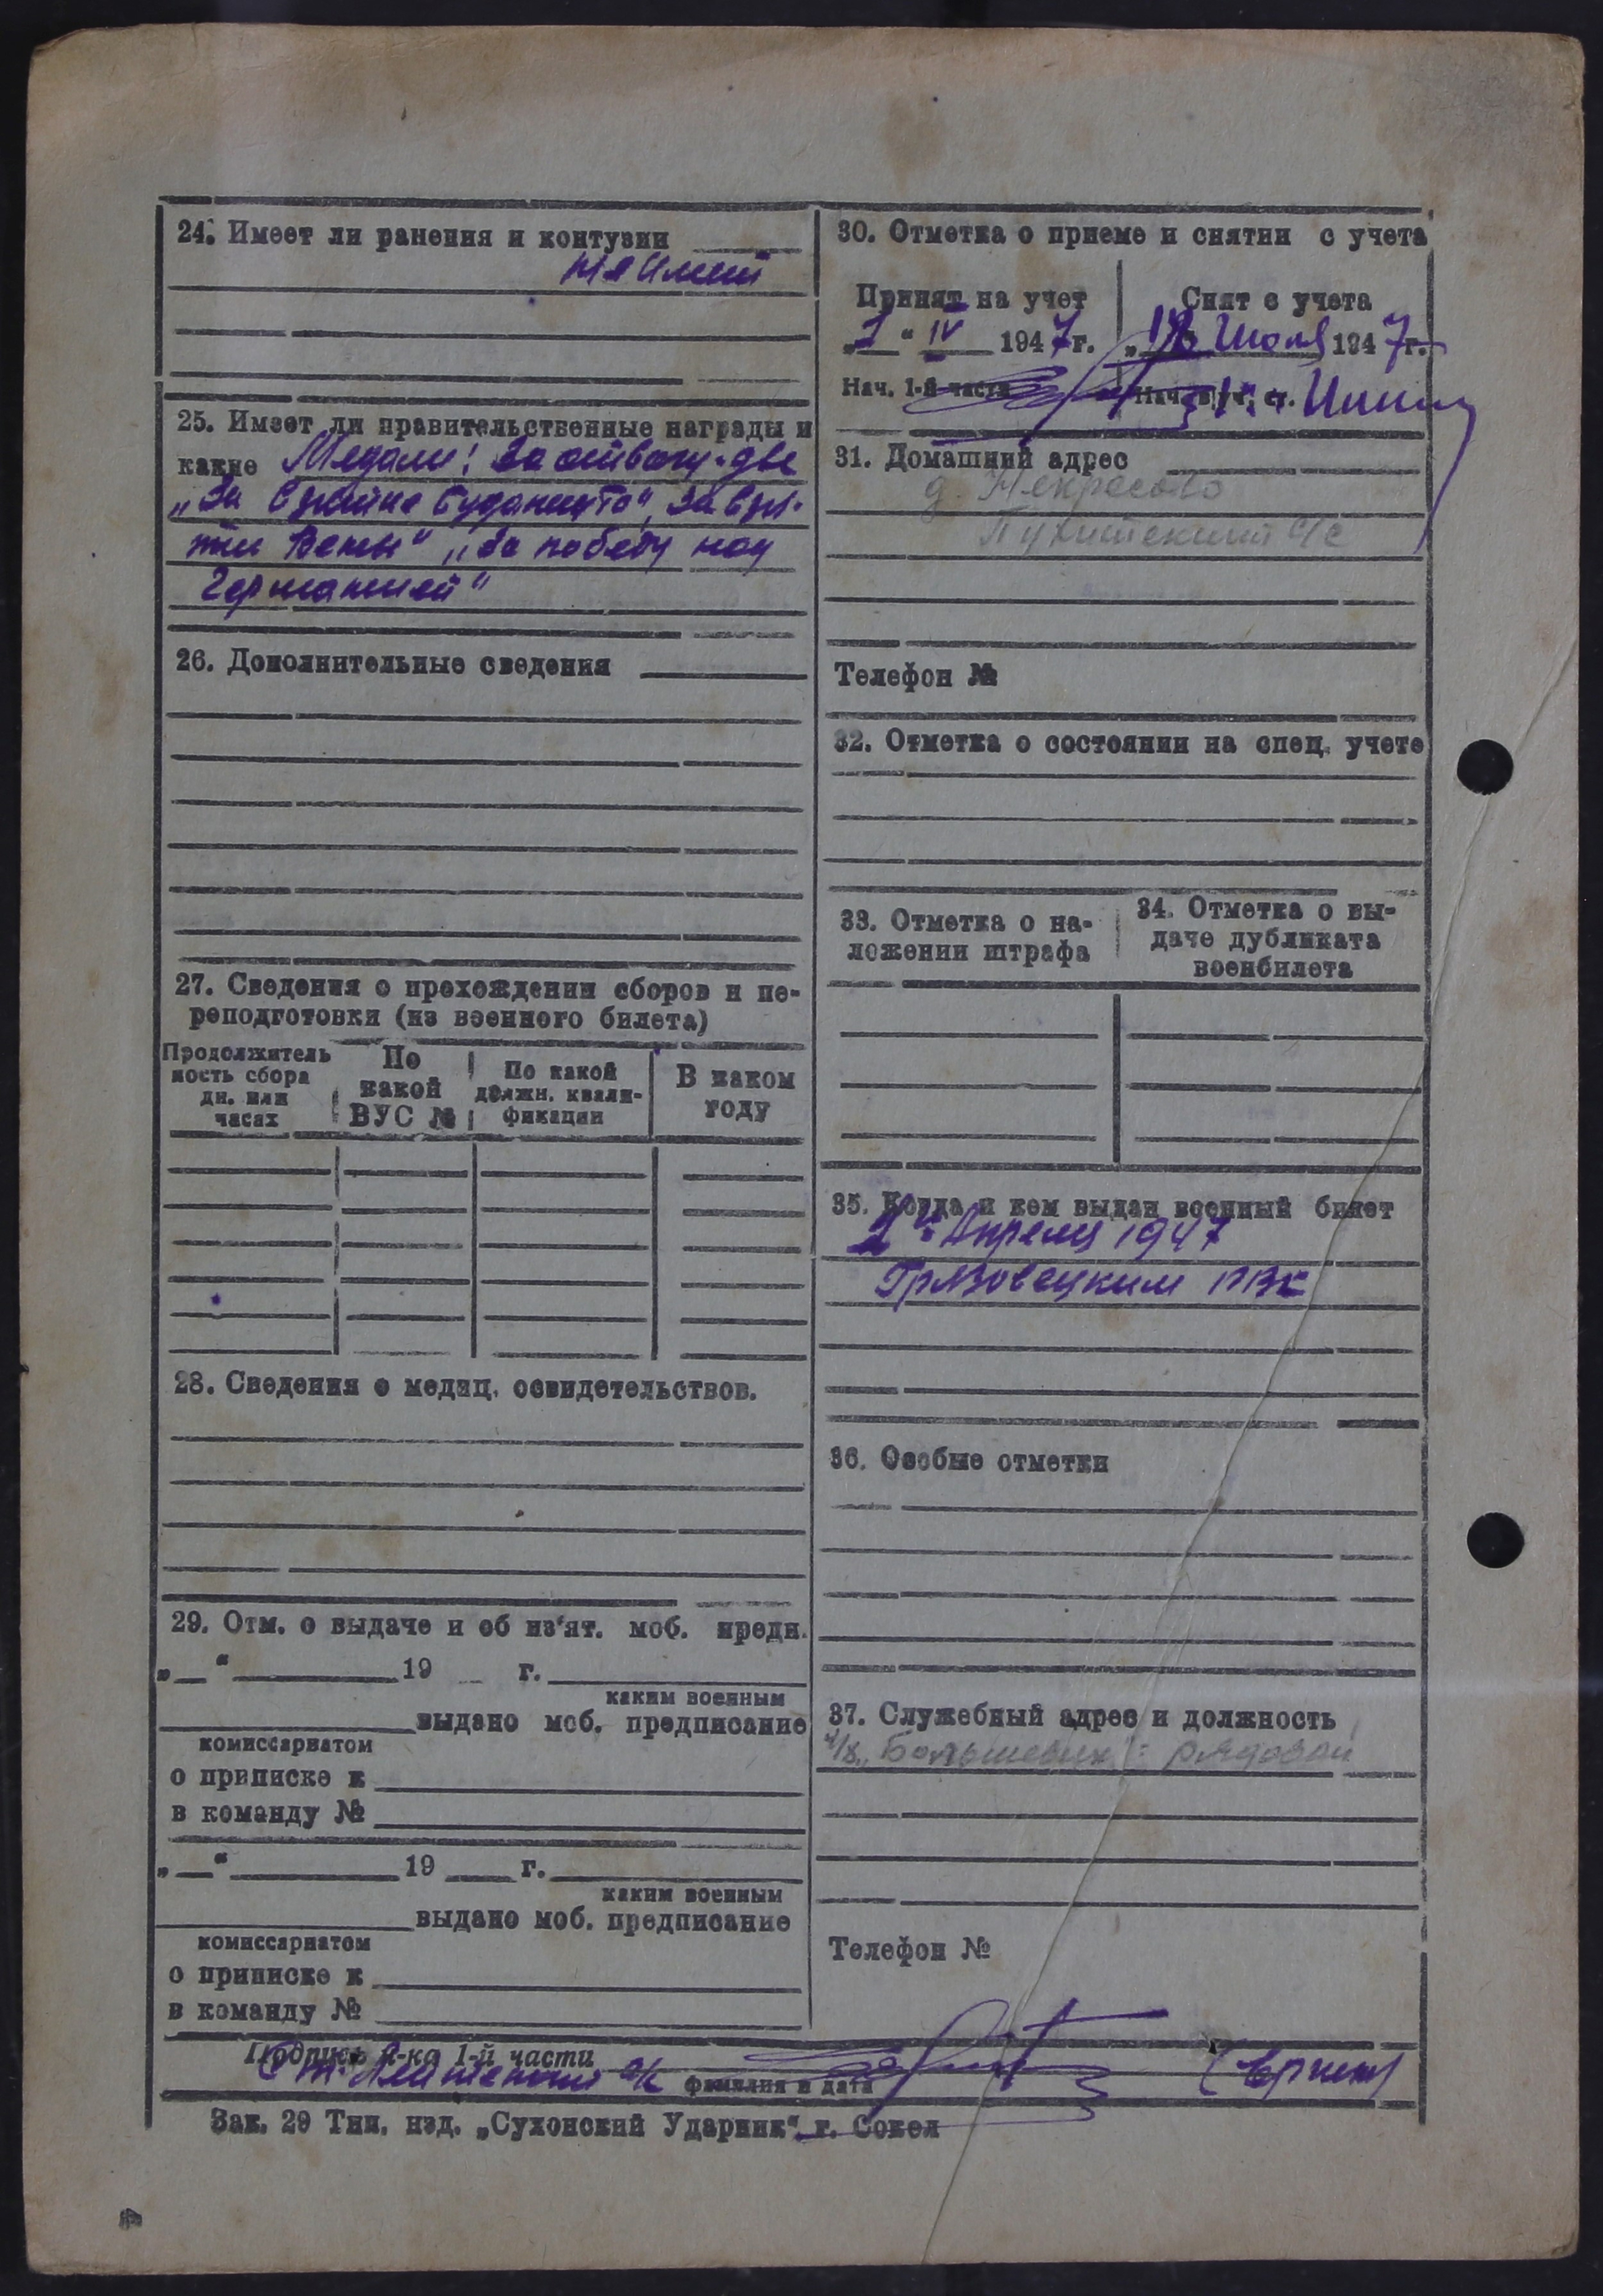 24. Имеет ли ранения и контузии
не имеет
25. Имеет ли правительственные награды и
какие Медали: За отвагу - две
„За взятие Будапешта", За взя-
тие Вены" „За победу над
Германией"
26. Дополнительные сведения
27. Сведения о прохождении сборов и пе-
реподготовки (из военного билета)
Продолжитель
ность сбора
дн. или
часах
По
какой
ВУС №
По какой
должн. квали-
фикации
В каком
году
28. Сведения о медиц. освидетельствов.
29. Отм. о выдаче и об из'ят. моб. предп.
„ " 19 г.
каким военным
выдано моб. предписание
комиссариатом
о приписке к
в команду №
„ " 19 г.
каким военным
выдано моб. предписание
комиссариатом
о приписке к
в команду №
30. Отметка о приеме и снятии с учета
Принят на учет
„1" IV 1947г.
Нач. 1-й части
Снят с учета
„18 Июля 1947г.
31. Домашний адрес
д. Некрасово
с/с
Телефон №
32. Отметка о состоянии на спец. учете
33. Отметка о на-
ложении штрафа
34. Отметка о вы-
даче дубликата
военбилета
35. Когда и кем выдан военный билет
1" Апреля 1947
Грязовецким РВК
36. Особые отметки
37. Служебный адрес и должность
к/х „Большевик" - рядовой
Телефон №
Подпись н-ка 1-й части
Ст. Лейтенант а/с
фамилия и дата
Зак. 29 Тип. изд. „Сухонский Ударник" г. Сокол